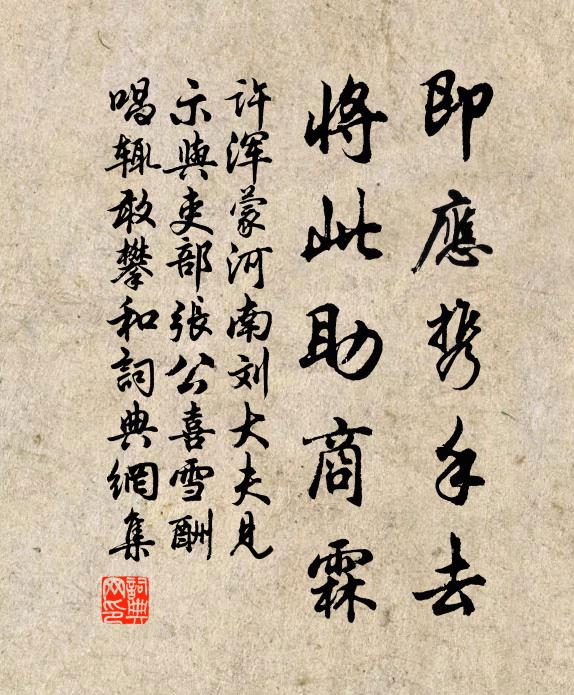 即應携手去
將此助商霖
許渾蒙河南刘大夫見
示與吏部張公喜雪酬
唱輒敢攀和詞典網集
詞典